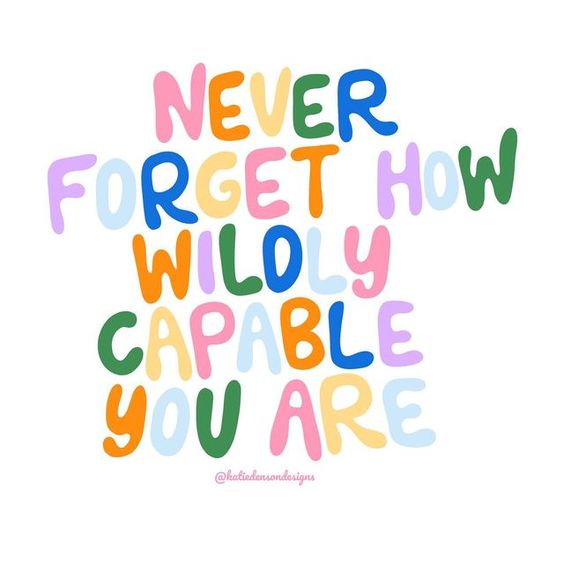 NEVER
FORGET HOW
WILDLY
CAPABLE
YOU ARE
@katiedensondesigns